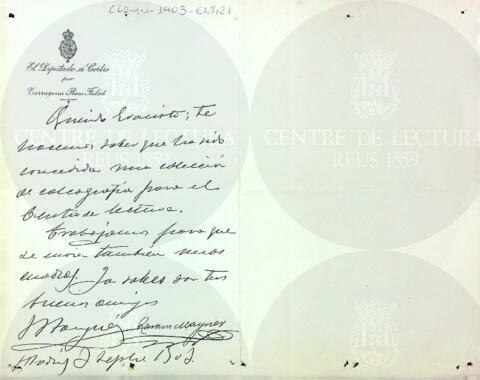 1903
El Diputado á Cortes
por
Tarragona-Reus-Falset
CENTRE DE LECTURA
REUS 1859
CENTRE DE LECTURA
REUS 1859
Querido Evaristo; te
hacemos saber que ha sido
concedida una colección
de calcografía para el
Centro de lectura.
Trabajamos para que
se envie también unos
cuadros. Ya sabes son tus
buenos amigos
Ramon Mayner
Madrid